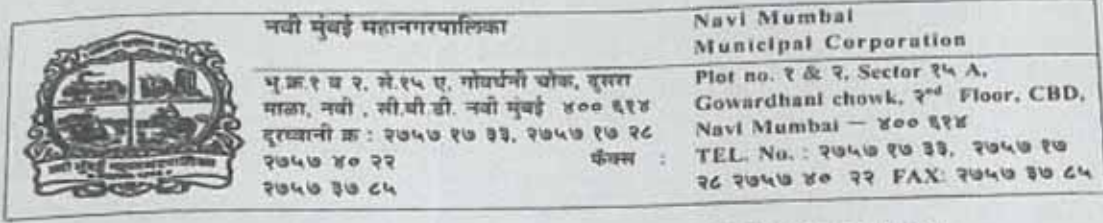 नवी मुंबई महानगरपालिका
भू.क्र.१ व २, से.१५ ए, गोवर्धनी चोक, दुसरा
माळा, नवी , सी.बी.डी. नवी मुंबई ४०० ६१४
दूरध्वानी क्र : २७५७ १७ ३३, २७५७ १७ २८
२७५७ ४० २२ फॅक्स :
२७५७ ३७ ८५
Navi Mumbai
Municipal Corporation
Plot no. १ & २, Sector १५ A,
Gowardhani chowk, २nd Floor, CBD,
Navi Mumbai — ४०० ६१४
TEL. No. : २७५७ १७ ३३, २७५७ १७
२८ २७५७ ४० २२ FAX: २७५७ ३७ ८५